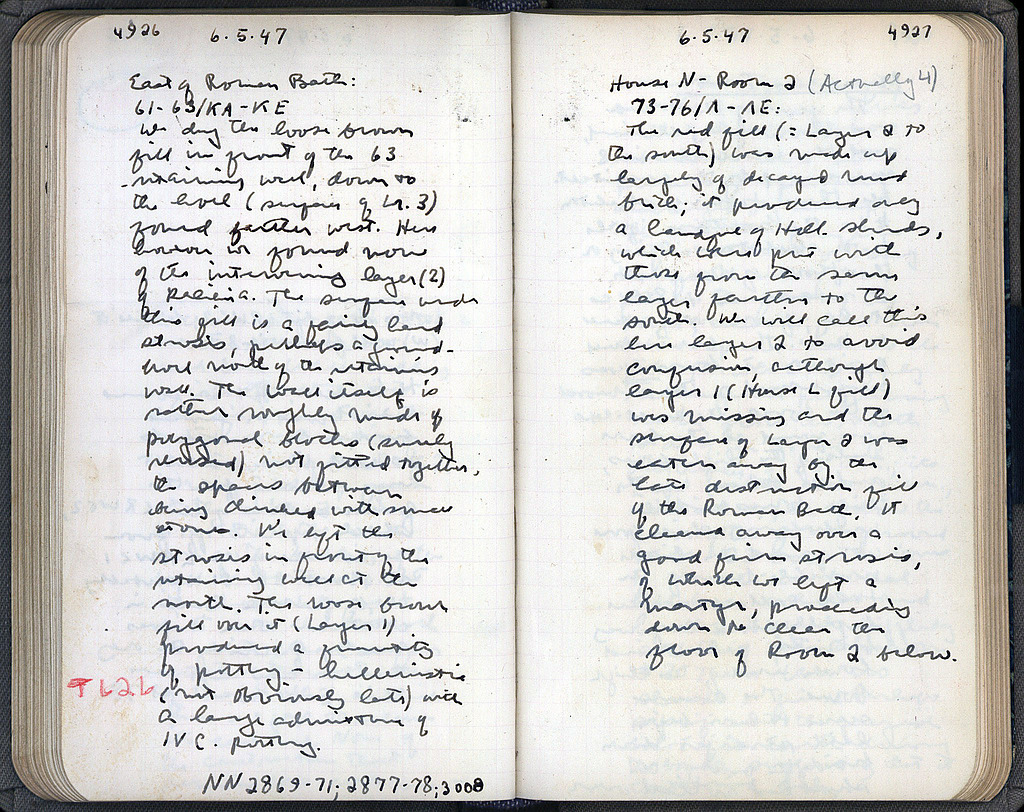 4926 6·5·47
East of Roman Bath:
61-63/ΚΑ-ΚΕ
We dug the loose brown
fill in front of the 63
retaining wall, down to
the level (surface of Lr. 3)
found farther west. Here
however we found none
of the intervening layer (2)
of
The surface under
this fill is a fairly hard
strosis, perhaps a
north of the retaining
wall. The wall itself is
rather roughly made of
polygonal blocks (surely
reused) not fitted together,
the spaces between
being chinked with small
stones. We left the
strosis in front of the
retaining wall at the
north. The loose brown
fill over it (Layer 1)
produced a quantity
of pottery - hellenistic
T 626
(not obviously late) with
a large admixture of
IV C. pottery.
NN 2869-71; 2877-78; 3008
6·5·47 4927
House N - Room 2 (Actually 4)
73-76/Λ-ΛΕ:
The red fill (= Layer 2 to
the south) was made up
largely of decayed mud
brick; it produced only
a handful of Hell. sherds,
which were put with
those from the same
layer farther to the
south. We will call this
here layer 2 to avoid
confusion, although
layer 1 (House L fill)
was missing and the
surface of Layer 2 was
eaten away by the
late destruction fill
of the Roman Bath. It
cleaned away over a
good firm strosis,
of which we left a
martyr, proceeding
down to clear the
floor of Room 2 below.